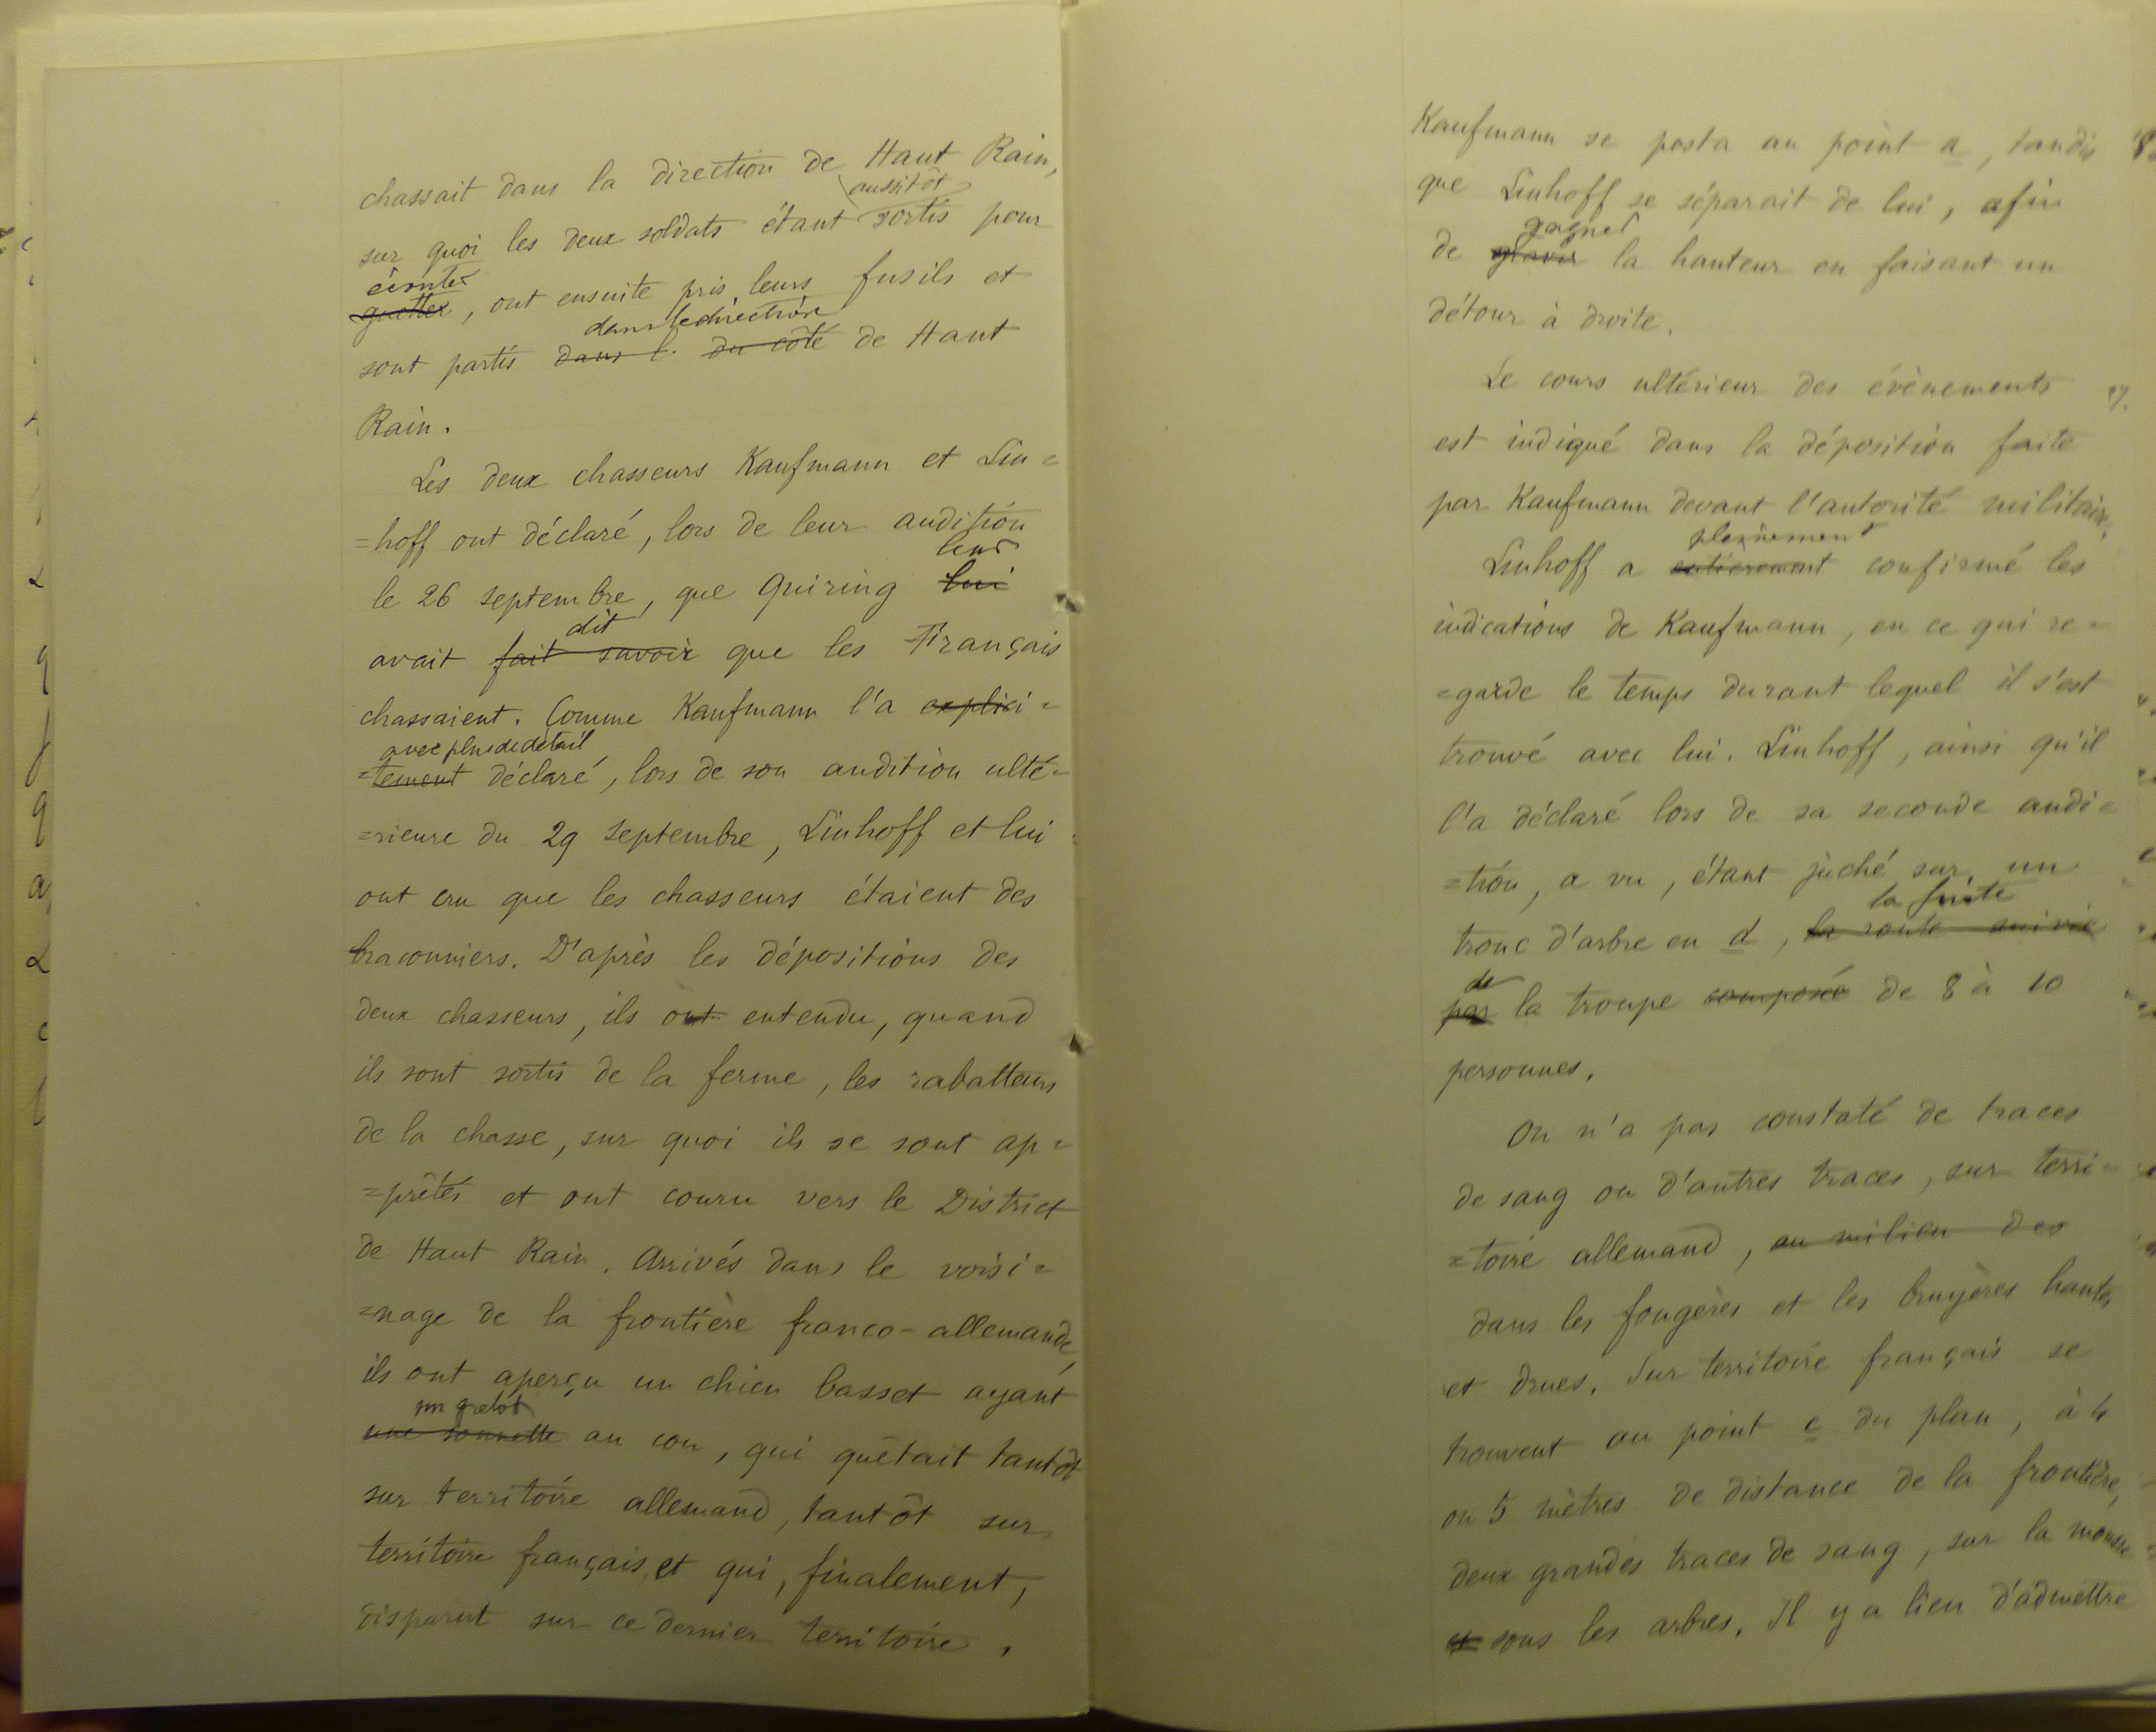 chassait dans la direction de Haut Rain,
aussitôt
sur quoi les deux soldats étant sortis pour
écouter
guetter, ont ensuite pris leurs fusils et
dans la direction
sont partis dans l. du côté de Haut
Rain.
Les deux chasseurs Kaufmann et Lin=
=hoff ont déclaré, lors de leur audition
leur
le 26 septembre, que Quiring lui
dit
avait fait savoir que les Français
chassaient. Comme Kaufmann l'a explici=
avec plus de détail
=tement déclaré, lors de son audition ulté=
=rieure du 29 septembre, Linhoff et lui
ont cru que les chasseurs étaient des
braconniers. D'après les dépositions des
deux chasseurs, ils ont entendu, quand
ils sont sortis de la ferme, les rabatteurs
de la chasse, sur quoi ils se sont ap=
=prêtés et ont couru vers le District
de Haut Rain. Arrivés dans le voisi=
=nage de la frontière franco-allemande,
ils ont aperçu un chien basset ayant
un grelot
une sonnette au cou, qui quêtait tantôt
sur territoire allemand, tantôt sur
territoire français, et qui, finalement,
disparut sur ce dernier territoire.
Kaufmann se posta au point a, tandis
que Linhoff se séparait de lui, afin
gagner
de gravir la hauteur en faisant un
détour à droite.
Le cours ultérieur des évènements
est indiqué dans la déposition faite
par Kaufmann devant l'autorité militaire.
pleinement
Linhoff a entièrement confirmé les
indications de Kaufmann, en ce qui re=
=garde le temps durant lequel il s'est
trouvé avec lui. Linhoff, ainsi qu'il
l'a déclaré lors de sa seconde audi=
=tion, a vu, étant juché sur un
la fuite
tronc d'arbre en d, la route suivie
de
par la troupe composée de 8 à 10
personnes.
On n'a pas constaté de traces
de sang ou d'autres traces, sur terri=
=toire allemand, au milieu des
dans les fougères et les bruyères hautes
et drues. Sur territoire français se
trouvent au point c du plan, à 4
ou 5 mètres de distance de la frontière,
deux grandes traces de sang, sur la mousse
et sous les arbres. Il y a lieu d'admettre